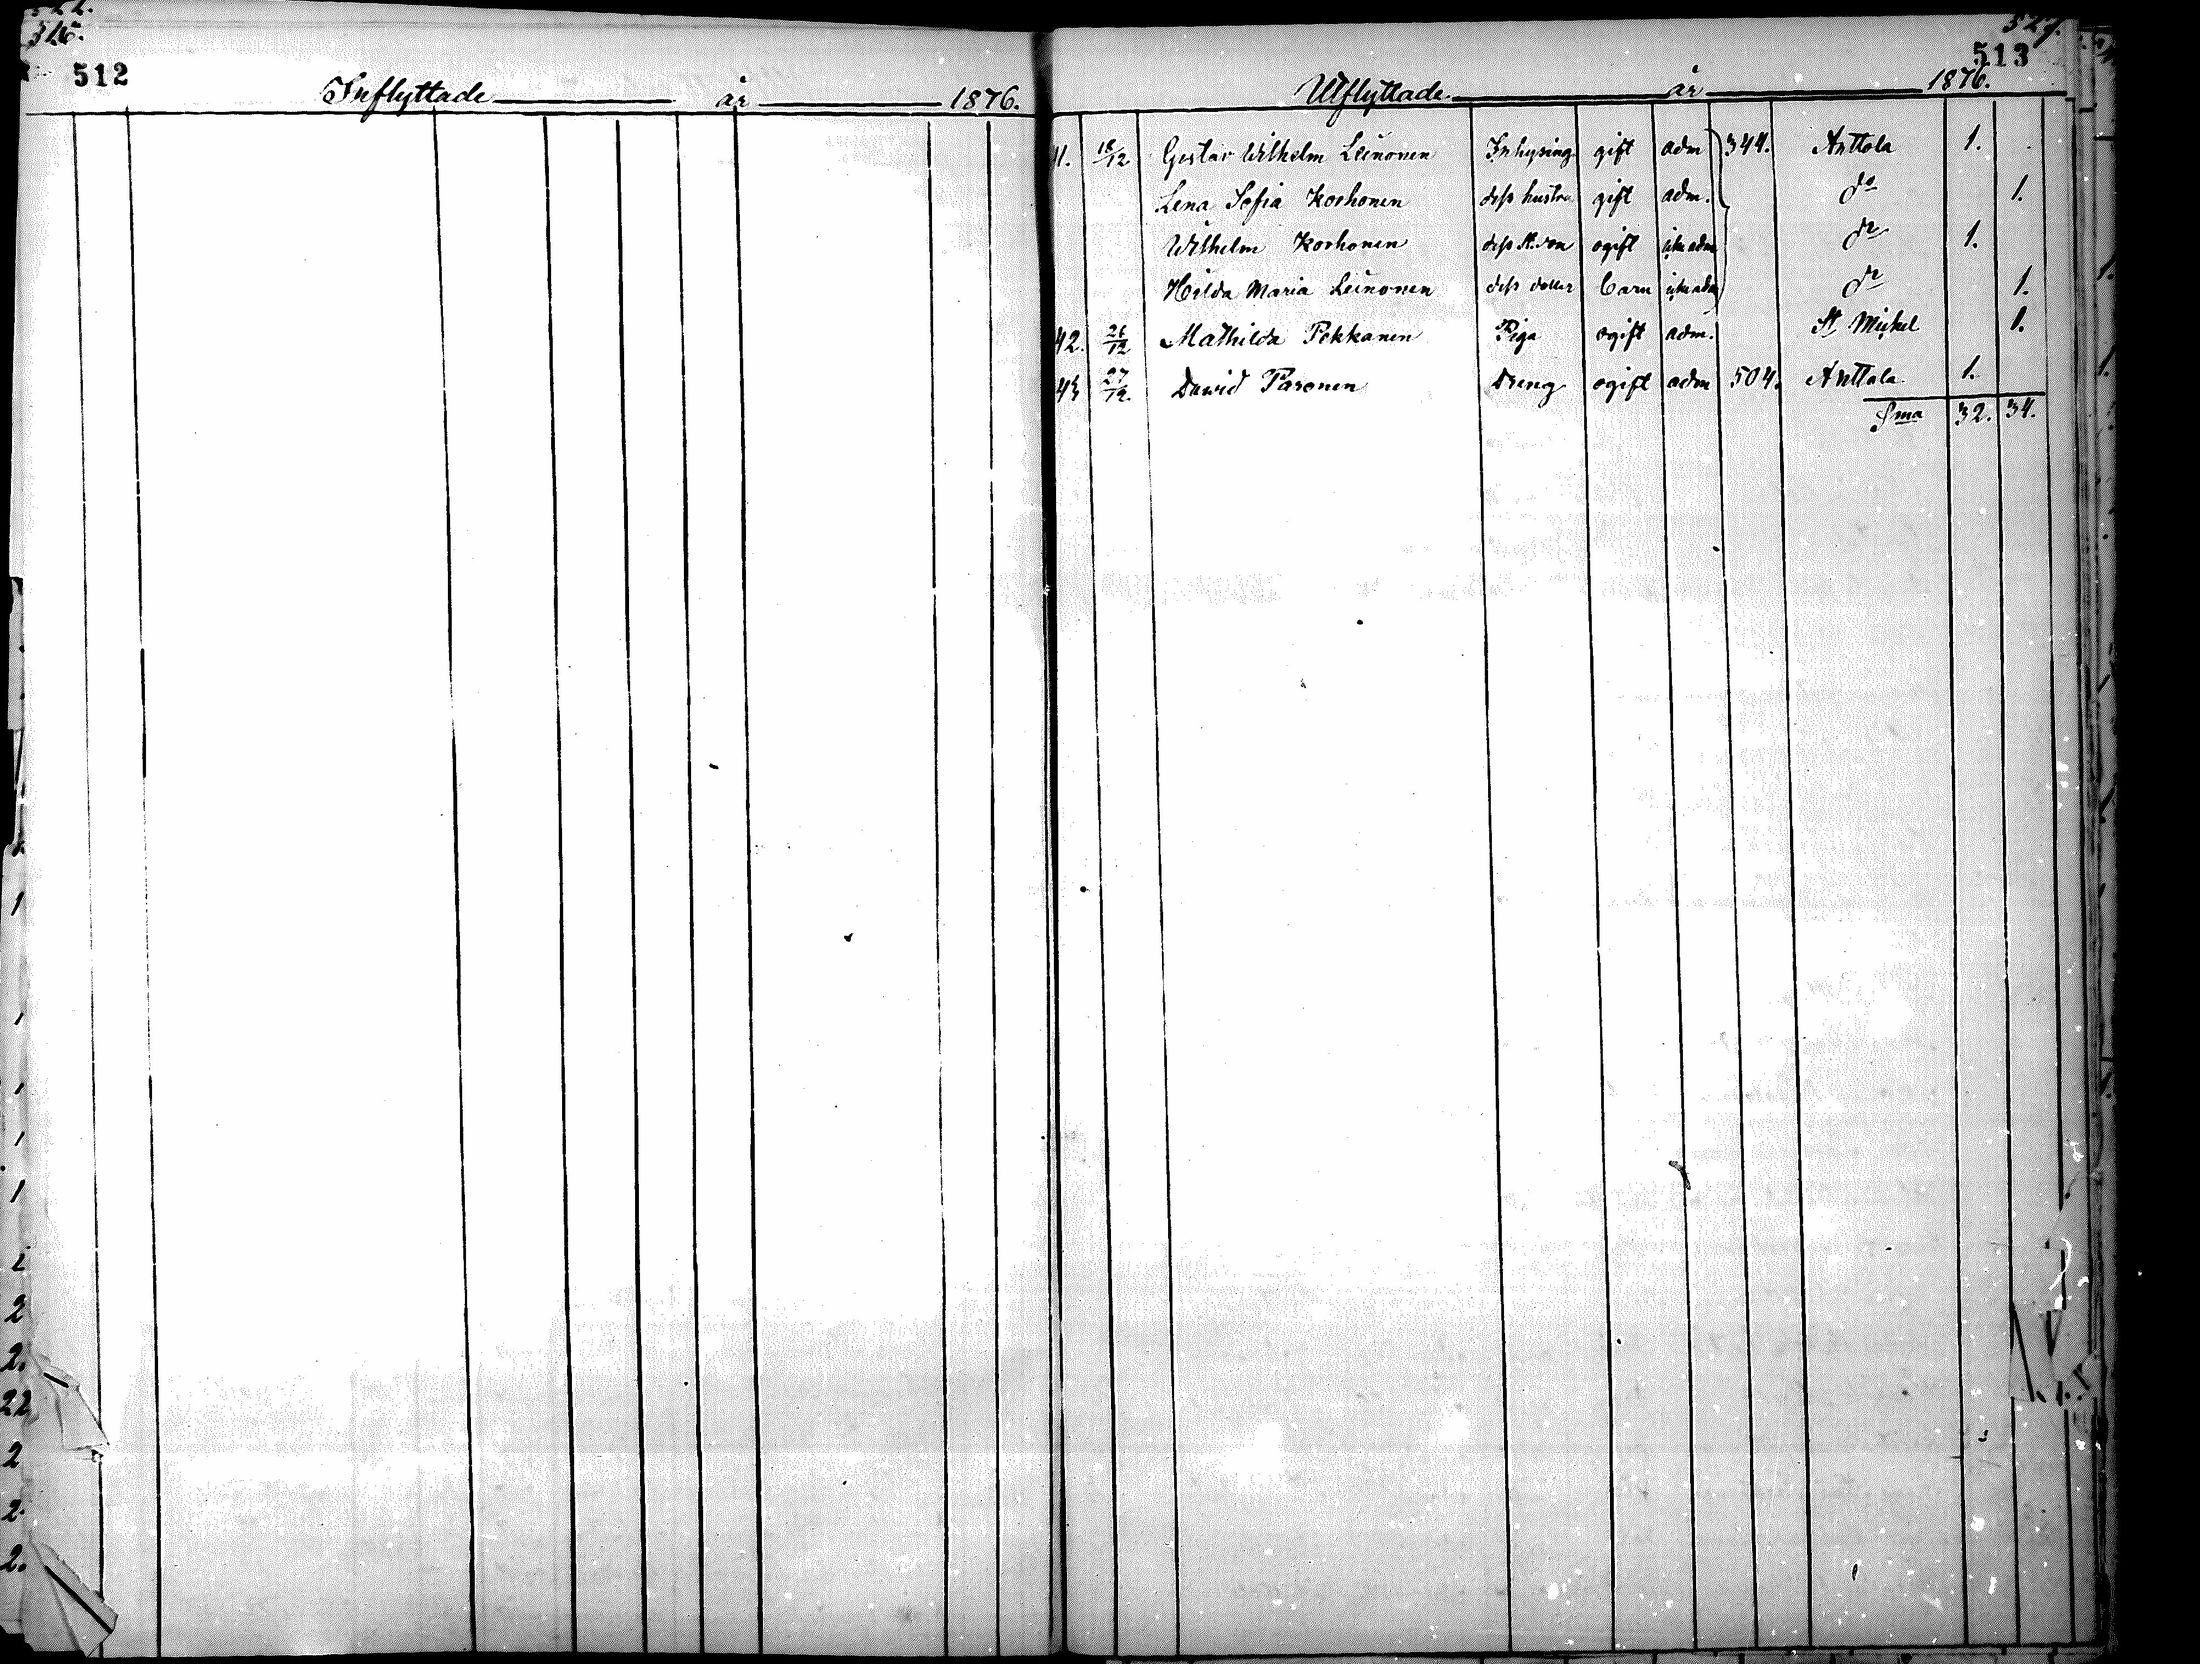 326.
512
Inflyttade år 1876.
327.
513
Utflyttade år 1876.
41. 18/12 Gustav Wilhelm Leinonen Inhysing gift adm 344. Anttola 1.
Lena Sofia Korhonen dess hustru gift adm. do 1.
Wilhelm Korhonen dess st. son ogift icke adm do 1.
Hilda Maria Leinonen dess dotter barn icke adm do 1.
42. 26/12 Mathilda Pekkanen Piga ogift adm. St Michel 1.
43 27/12. David Paronen Dreng ogift adm 504. Anttola 1.
Sma 32. 34.